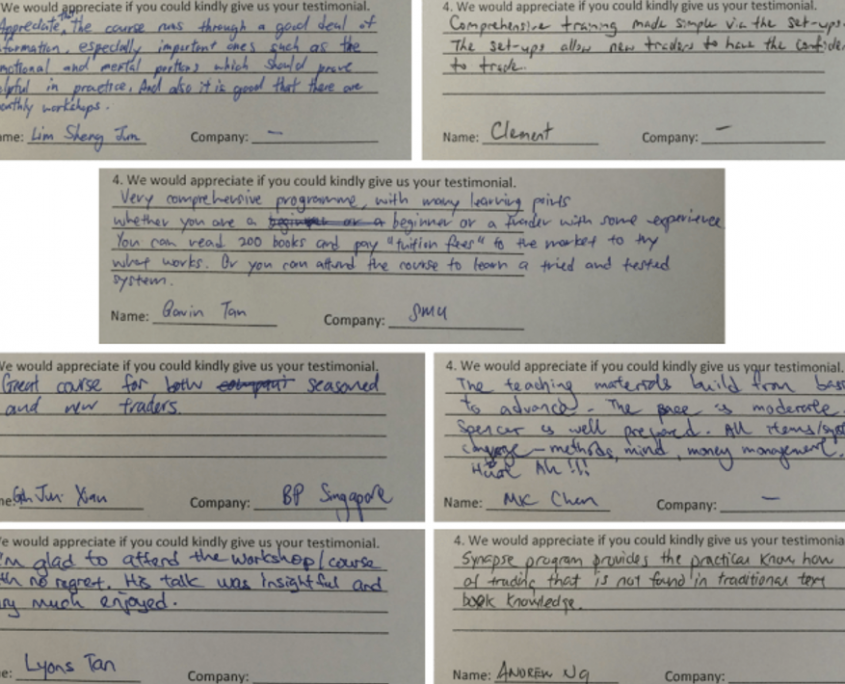 We would appreciate if you could kindly give us your testimonial.
Appreciate that the course runs through a good deal of
formation, especially important ones such as the
otional and mental portions which should prove
lpful in practice. And also it is good that there are
onthly workshops.
me: Lim Sheng Jun Company: —
4. We would appreciate if you could kindly give us your testimonial.
Comprehensive training made simple via the set-ups.
The set-ups allow new traders to have the confide
to trade.
Name: Clement Company: —
4. We would appreciate if you could kindly give us your testimonial.
Very comprehensive programme, with many learning points
whether you are a beginner or a beginner or a trader with some experience
You can read 200 books and pay "tuition fees" to the market to try
what works. Or you can attend the course to learn a tried and tested
system.
Name: Gavin Tan Company: SMU
We would appreciate if you could kindly give us your testimonial.
Great course for both seasoned
and new traders.
me: Goh Jun Xian Company: BP Singapore
4. We would appreciate if you could kindly give us your testimonial.
The teaching materials build from bas
to advance. The pace is moderate.
Spencer is well prepared. All items/syst
converge – methods, mind, money management.
Huat Ah!!!
Name: MK Chen Company: —
e would appreciate if you could kindly give us your testimonial.
'm glad to attend the workshop/course
th no regret. His talk was insightful and
ry much enjoyed.
e: Lyons Tan Company:
4. We would appreciate if you could kindly give us your testimonia
Synapse program provides the practical know how
of trading that is not found in traditional text
book knowledge.
Name: ANDREW NG Company: